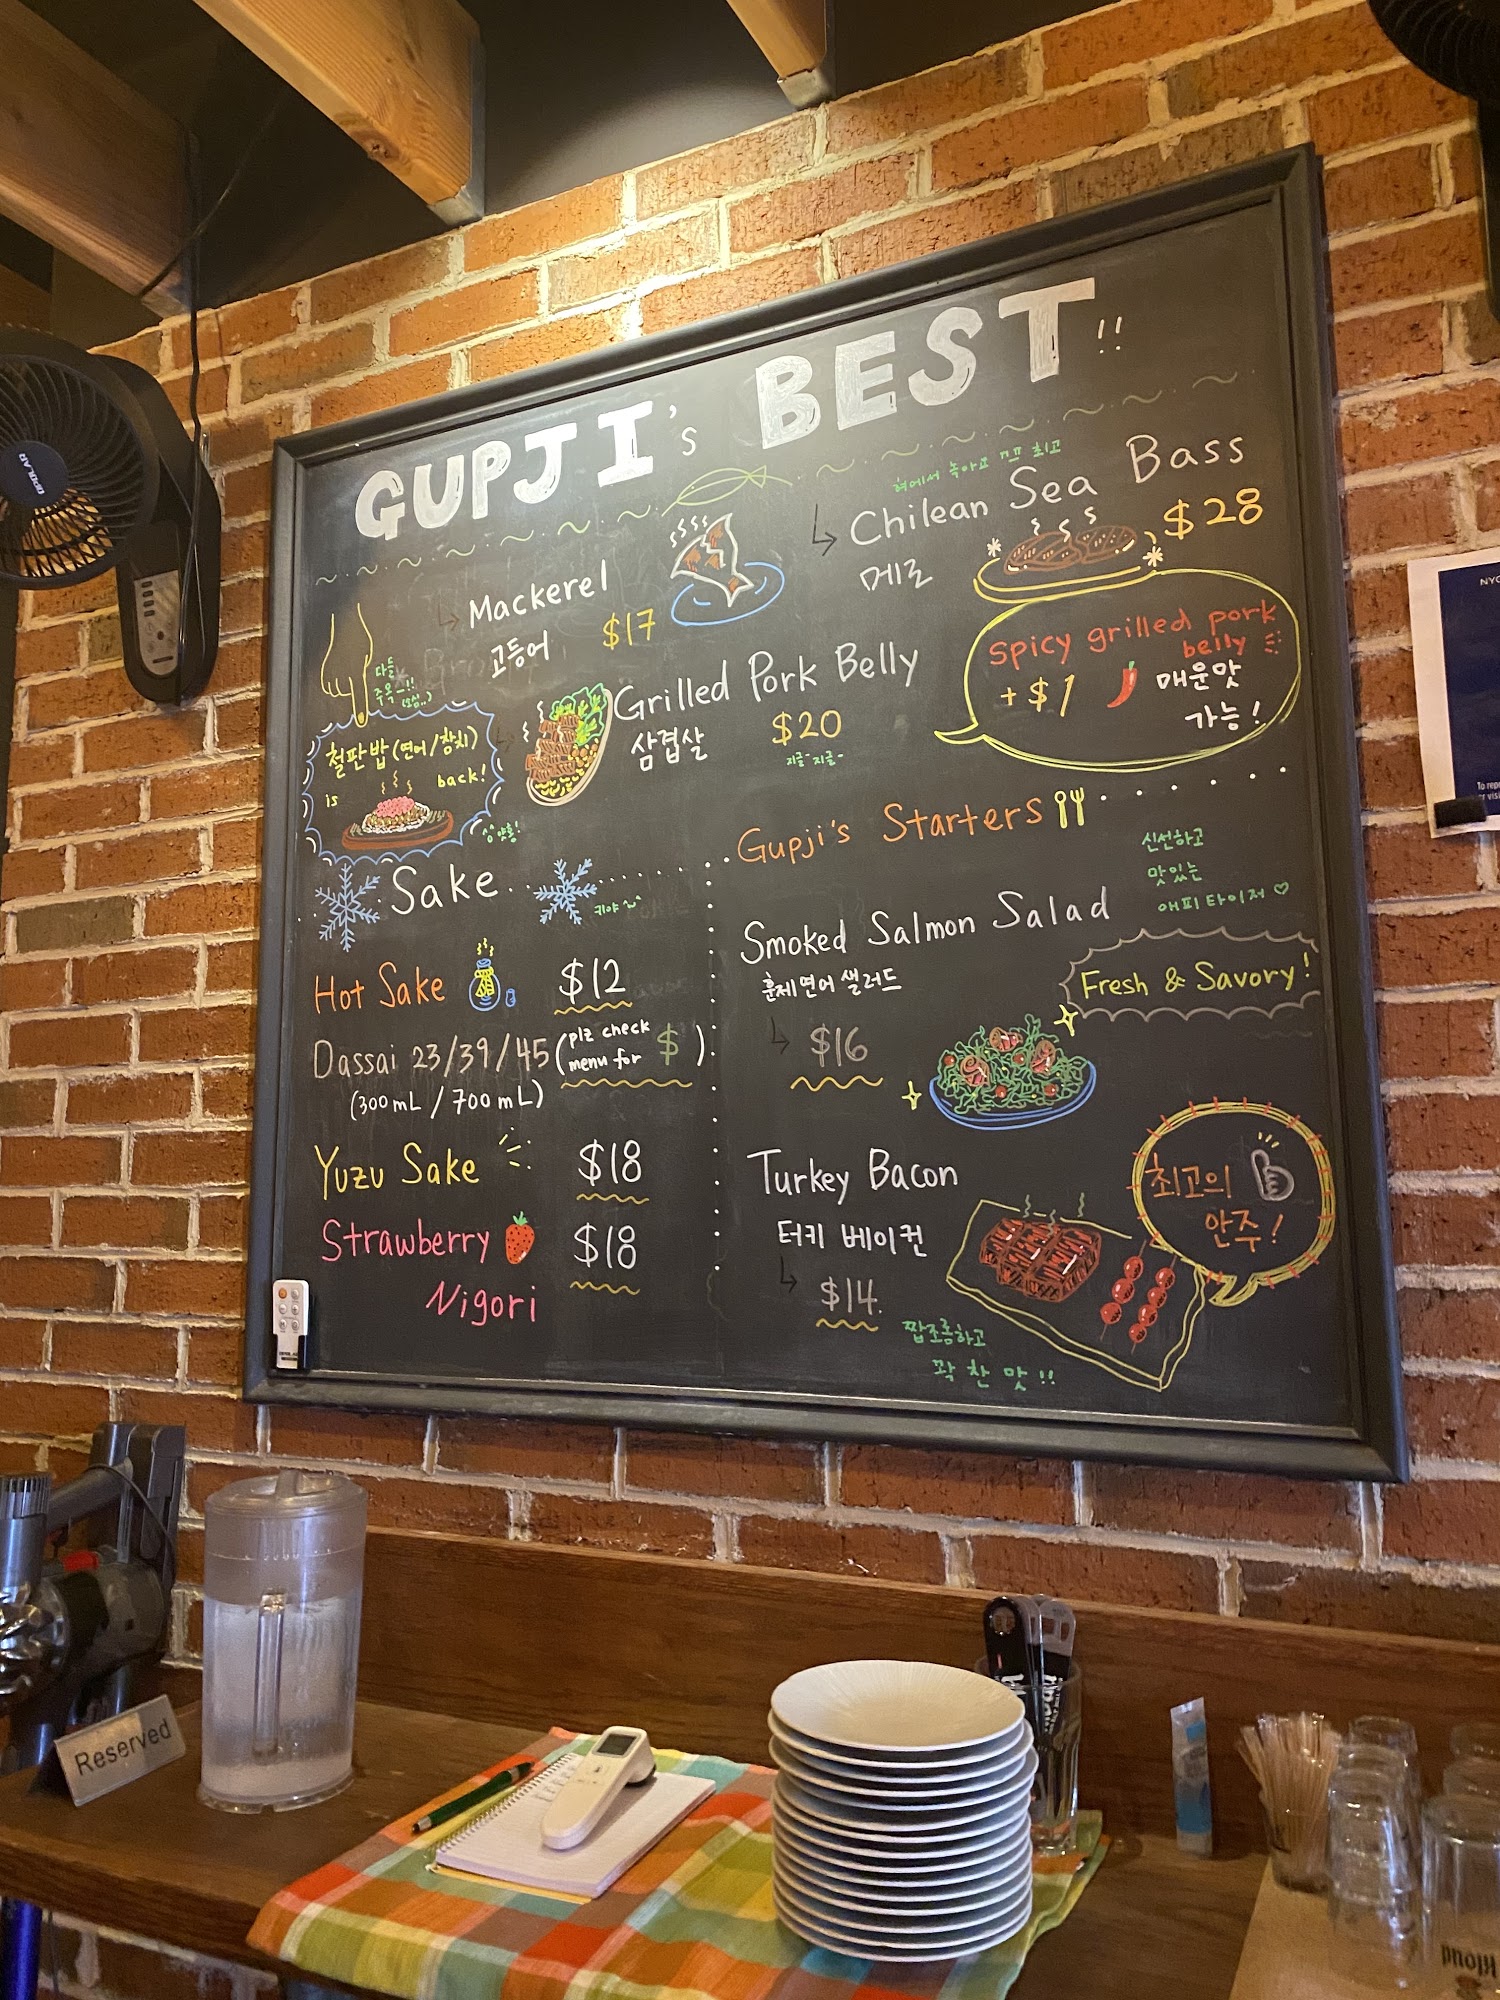 GUPJI's BEST!!
Mackerel
고등어 $17
혀에서 녹아요 최고
Chilean Sea Bass
메로 $28
다들
주목-!!
철판밥 (연어/참치)
is back!
Grilled Pork Belly
삼겹살 $20
지글-지글-
spicy grilled pork
belly
+$1 매운맛
가능!
Sake
Hot Sake $12
Dassai 23/39/45 (plz check
menu for $)
(300mL/700mL)
Yuzu Sake $18
Strawberry $18
Nigori
Gupji's Starters
신선하고
맛있는
애피타이저 ♡
Smoked Salmon Salad
훈제연어 샐러드
$16
Fresh & Savory!
Turkey Bacon
터키 베이컨
$14.
최고의
안주!
짭조롬하고
꽉 찬 맛!!
Reserved
NYC